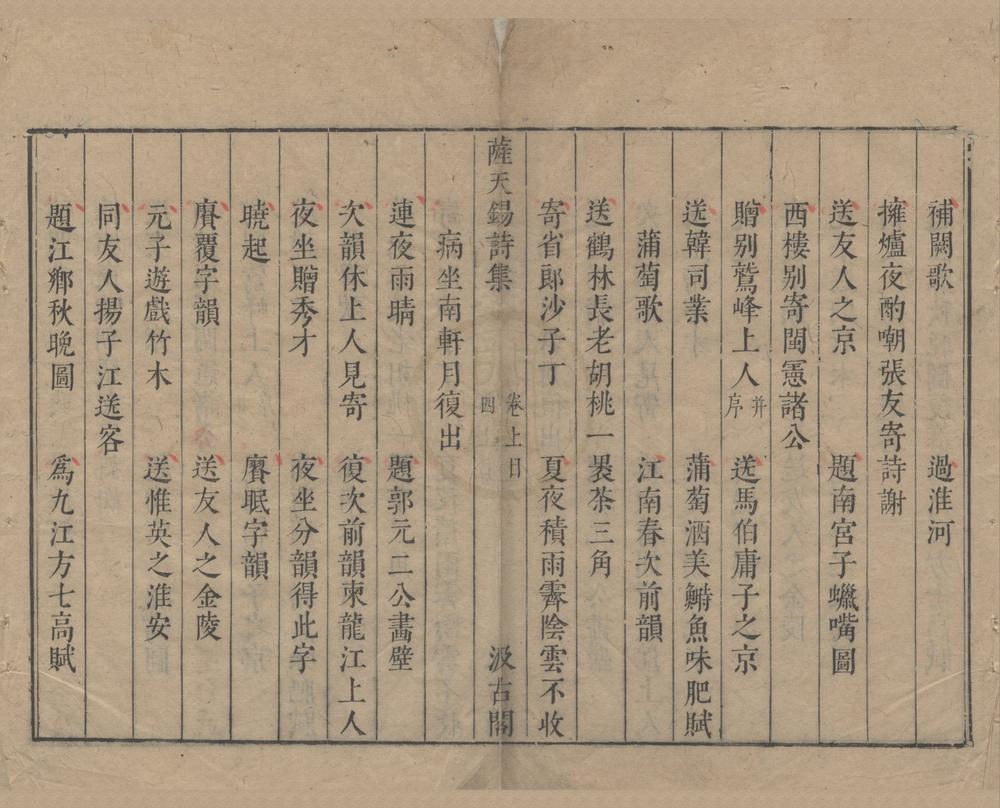 補闕歌　過淮河
擁爐夜酌嘲張友寄詩謝
送友人之京　題南宮子蠟嘴圖
西樓别寄閩憲諸公
贈别鷲峰上人并序　送馬伯庸子之京
送韓司業　蒲萄酒美鰣魚味肥賦
蒲萄歌　江南春次前韻
送鶴林長老胡桃一褁茶三角
寄省郎沙子丁　夏夜積雨霽陰雲不收
薩天錫詩集　卷上目　四　汲古閣
病坐南軒月復出
連夜雨晴　題郭元二公畵壁
次韻休上人見寄　復次前韻柬龍江上人
夜坐贈秀才　夜坐分韻得此字
曉起　賡眠字韻
賡覆字韻　送友人之金陵
元子遊戲竹木　送惟英之淮安
同友人揚子江送客
題江鄉秋晚圖　爲九江方七高賦